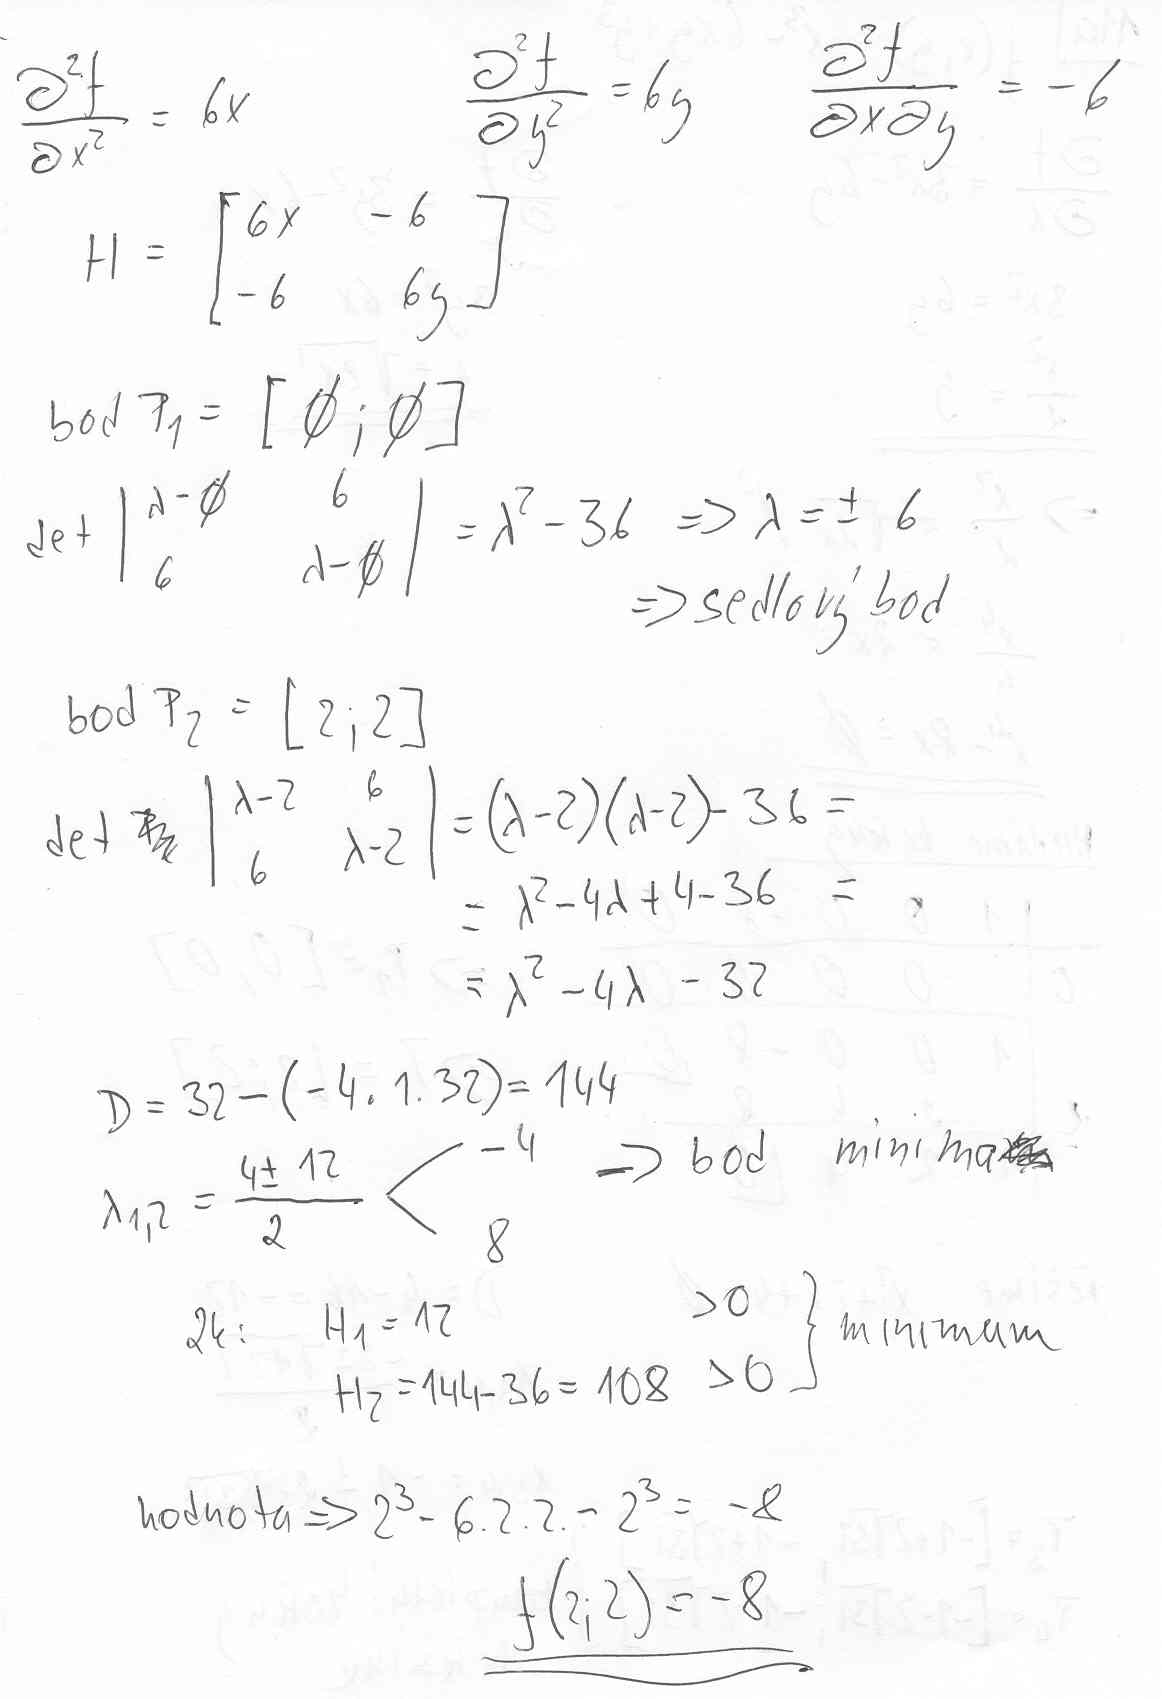 ∂²f/∂x² = 6x ∂²f/∂y² = 6y ∂²f/∂x∂y = -6
H = [6x -6
-6 6y]
bod P₁ = [∅;∅]
det |λ-∅ 6
6 λ-∅| = λ² - 36 => λ = ± 6
=> sedlový bod
bod P₂ = [2;2]
det |λ-2 6
6 λ-2| = (λ-2)(λ-2) - 36 =
= λ² - 4λ + 4 - 36 =
= λ² - 4λ - 32
D = 32 - (-4.1.32) = 144
λ₁,₂ = (4 ± 12)/2 < -4 => bod minima
8
2k: H₁ = 12 >0
H₂ = 144 - 36 = 108 >0 } minimum
hodnota => 2³ - 6.2.2. - 2³ = -8
f(2;2) = -8